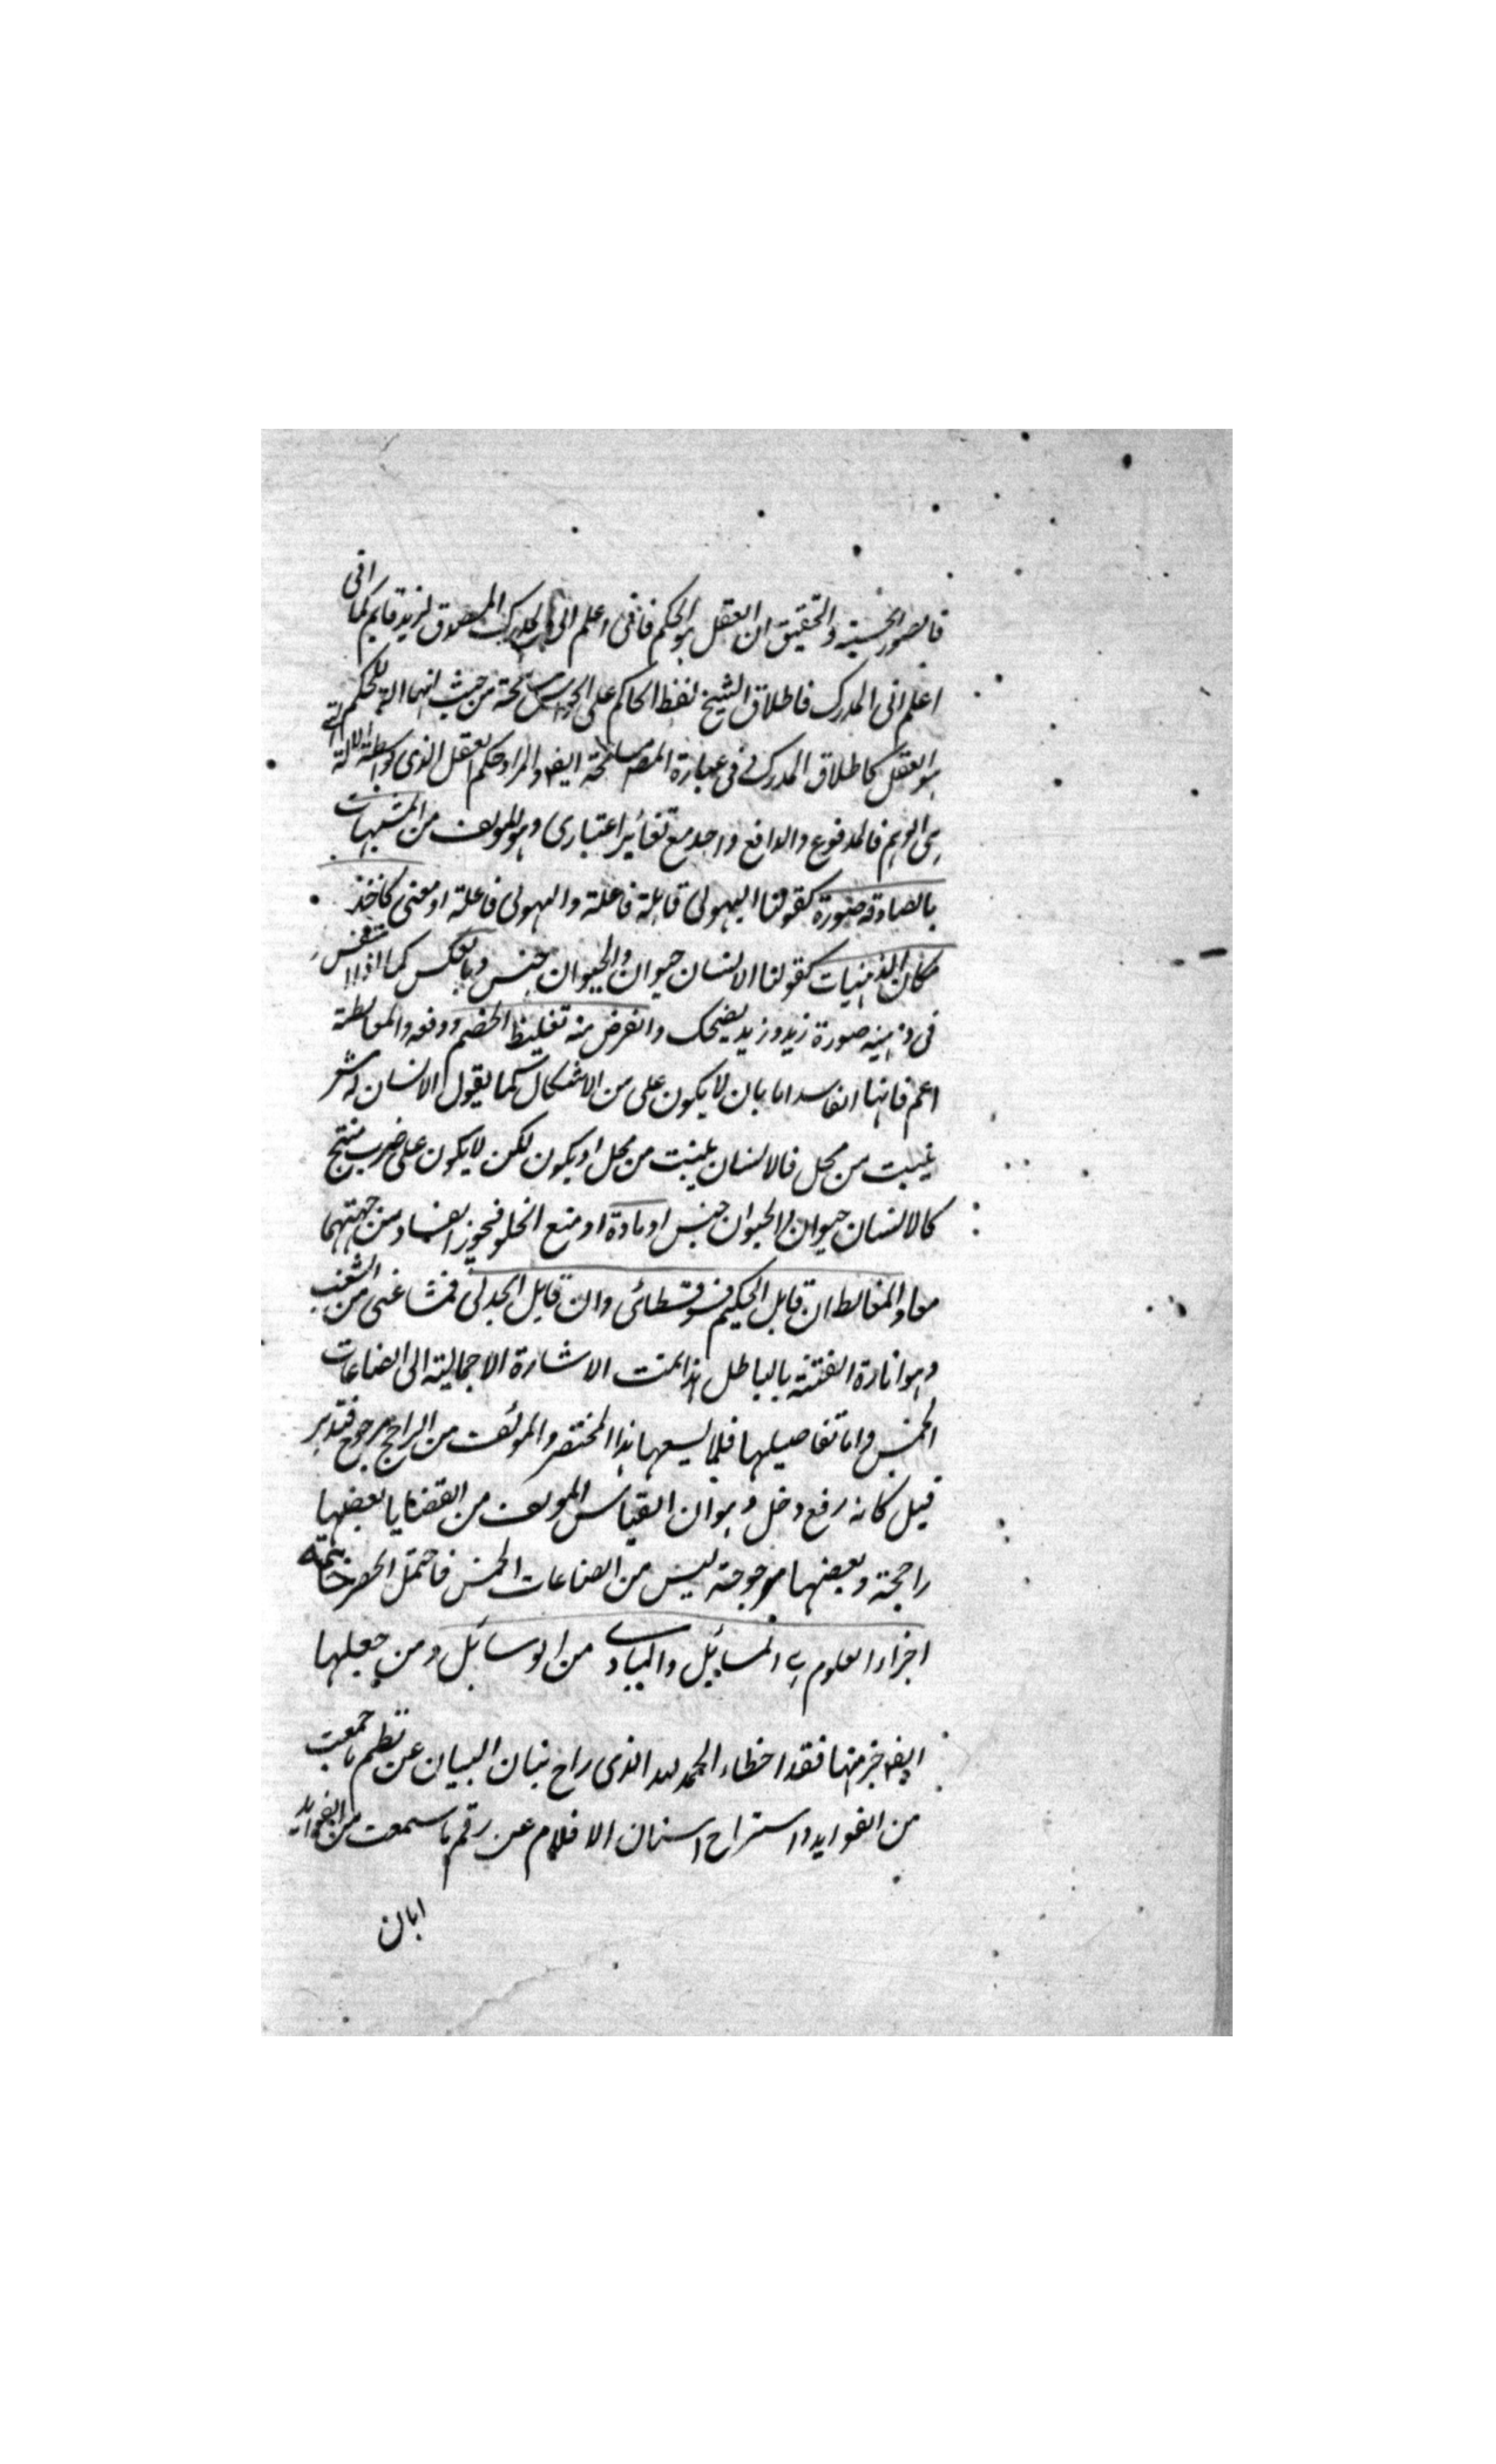 فالصور الحسية والتحقيق ان العقل هو الحكم فافى اعلم الى المدرك المصوق لزيد قايم كما انى
اعلم انى المدرك فاطلاق الشيخ لفظ الحاكم على الحواس مسامحة من حيث انها الة للحكم
هو العقل كاطلاق المدرك فى عبارة المصـ مسامحة ايضـ والمراد حكم العقل الذى بواسطة الالة التى
هى الوهم فالمدفوع والدافع واحد مع تغائير اعتبارى وهو المولف من المشبهات
بالصادقه صورة كقولنا الهيولى قابلة فاعلة والهيولى فاعلة او معنى كاخذ
مكان الذهنيات كقولنا الانسان حيوان والحيوان جنس وبالعكس كما اذا
فى ذهنيه صورة زيد وزيد يضحك والغرض منه تغليط الخصم ودفعه والمغالطة
اعم فانها الفاسد اما بان لا يكون على من الاشكال كما يقول الانسان له شعر
ينبت من محل فالانسان ينبت من محل او يكون لكن لا يكون على ضرب منتج
كالانسان حيوان والحيوان جنس او مادة او منع الخلو فيجوز الفساد من جهتهما
معا والمغالط ان قابل الحكيم فسوفسطائى وان قابل الجدلى فمشاغبى من الشغب
وهو اثارة الفتنة بالباطل هذا تمت الاشارة الاجمالية الى الصناعات
الخمس واما تفاصيلها فلا يسعها هذا المختصر والمولف من الراجح مرجوح فتدبر
قيل كانه رفع دخل وهو ان القياس المولف من القضايا بعضها
راجحة وبعضها مرجوحة ليس من الصناعات الخمس فاحتمل الحصر خاتمة
اجزاء العلوم هى المسائل والمبادى من الوسائل ومن جعلها
ايضـ جزء منها فقد اخطاء الحمد لله الذى راح بنان البيان عن نظم ما جمعت
من الفوايد واستراح اسنان الاقلام عن رقم ما سمعت من الفوايد
ابان